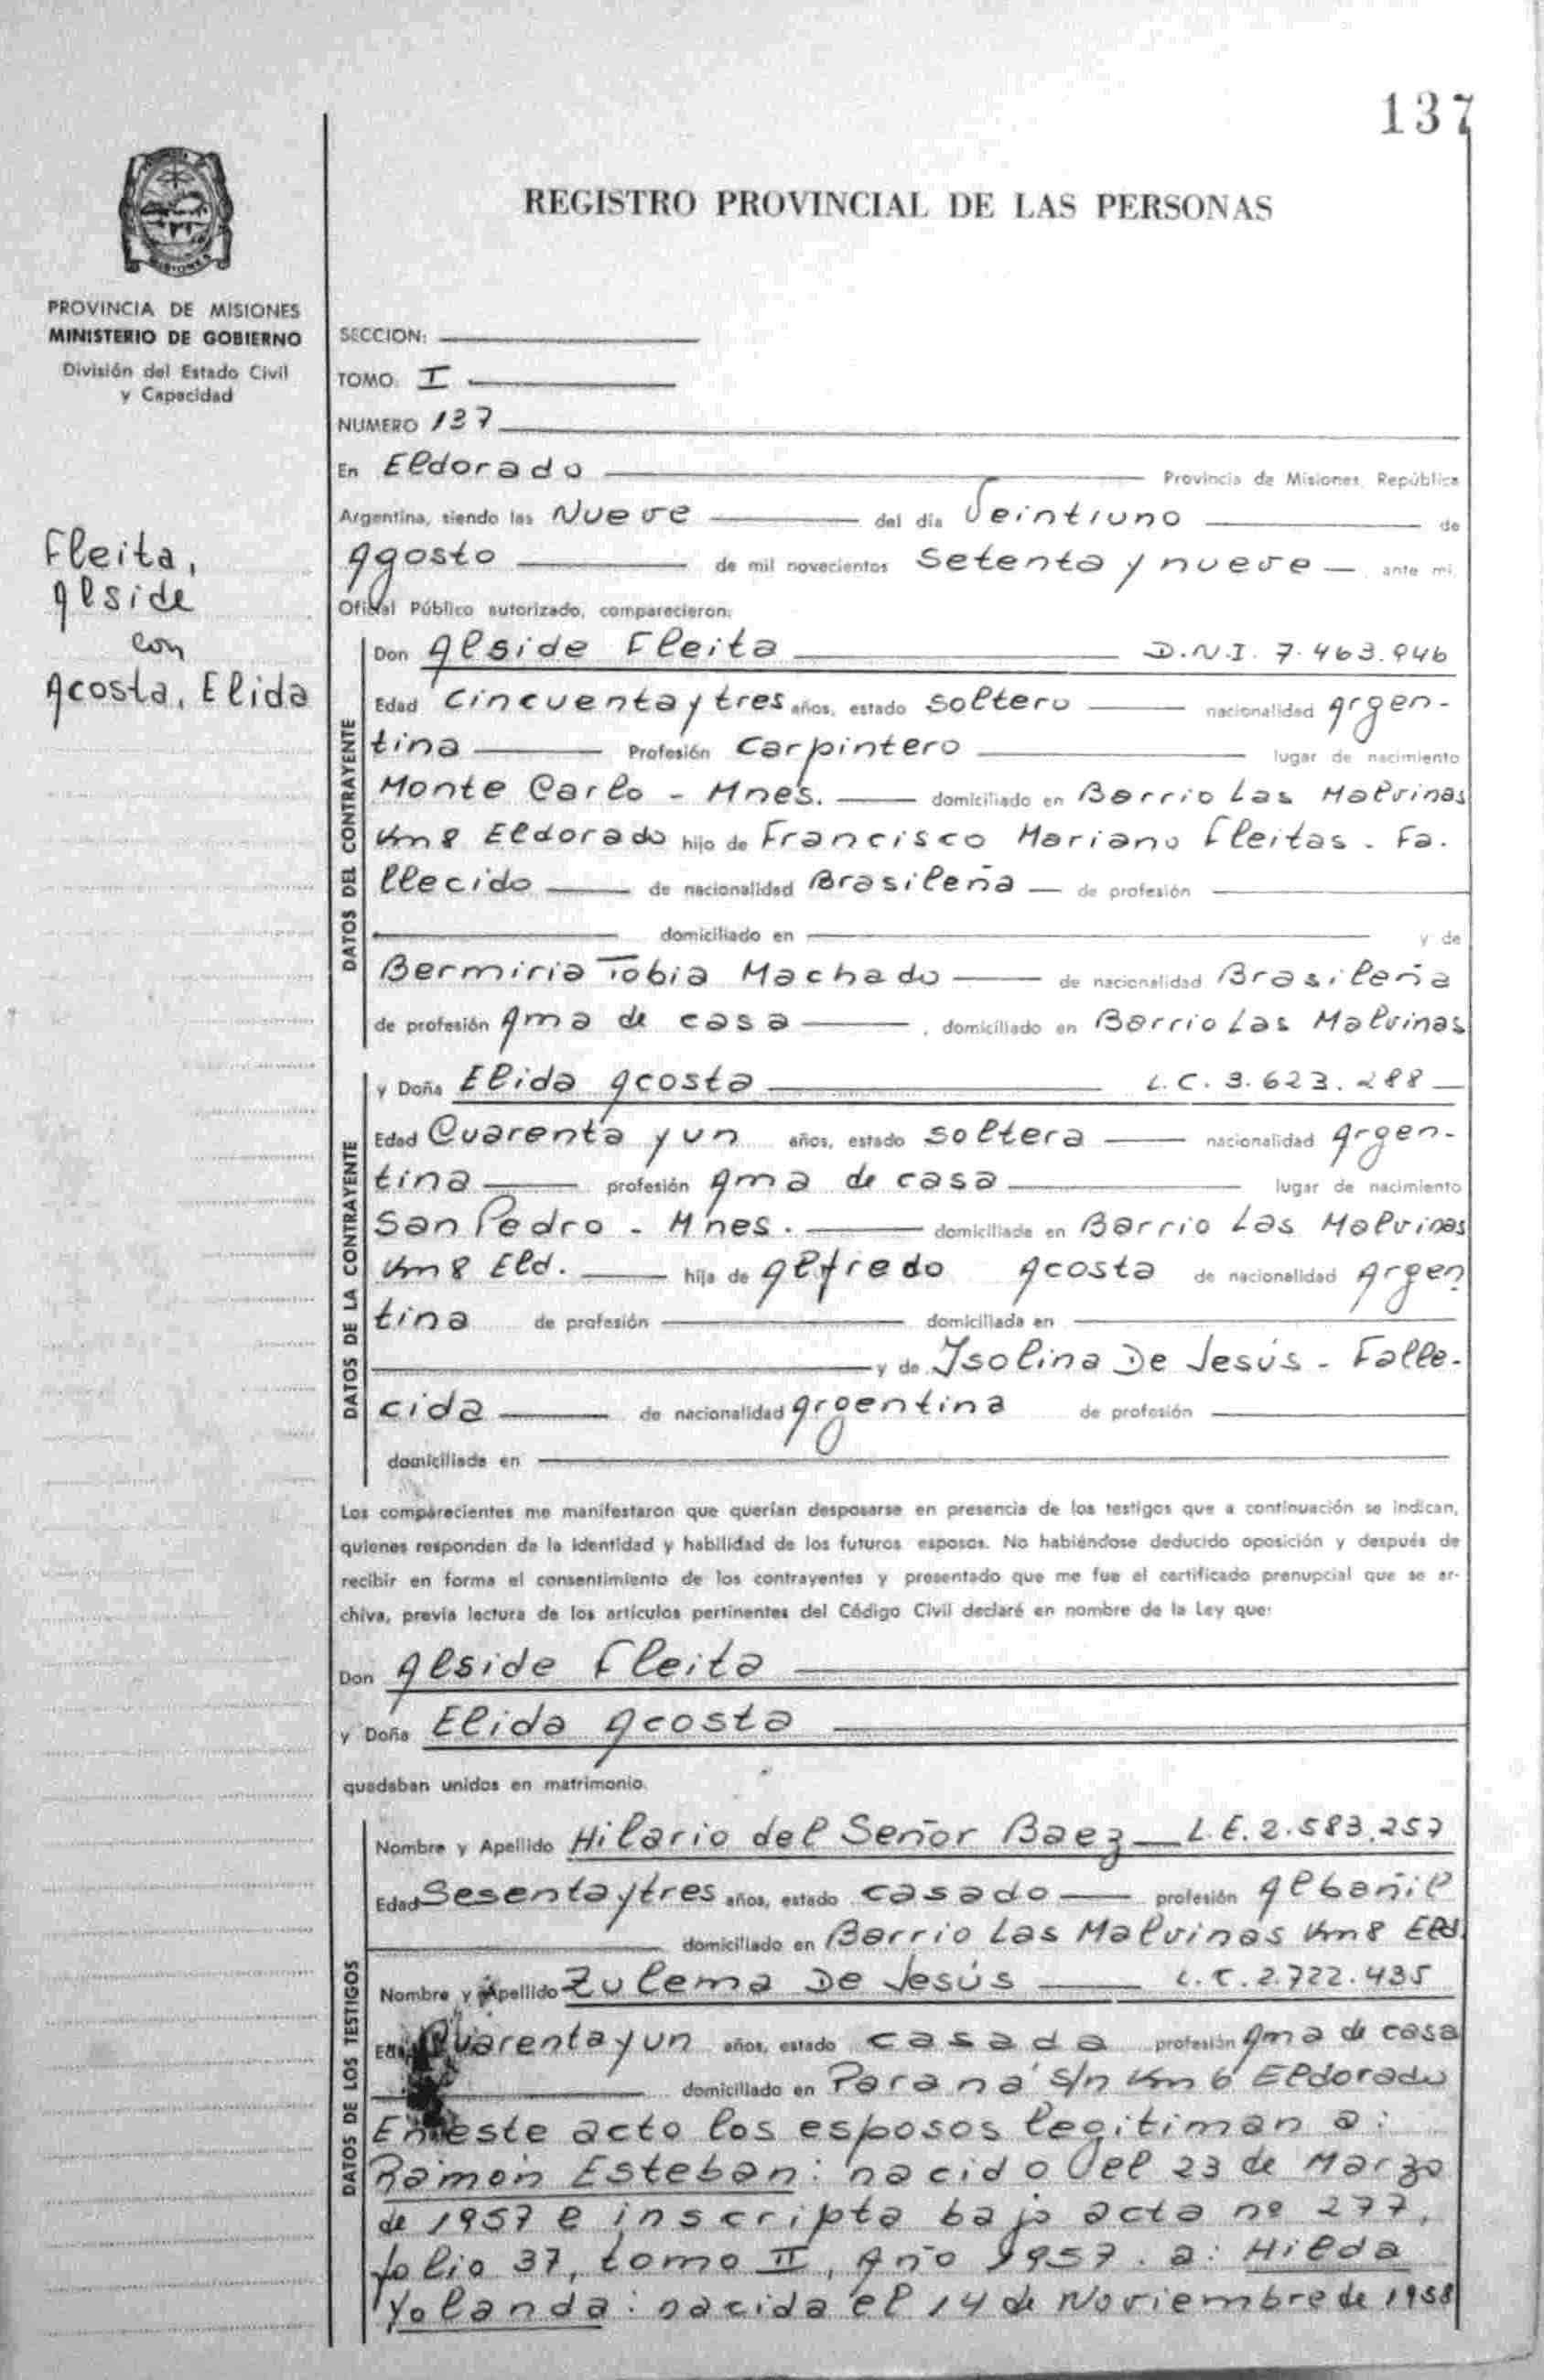 137
REGISTRO PROVINCIAL DE LAS PERSONAS
MISIONES
PROVINCIA DE MISIONES
MINISTERIO DE GOBIERNO
División del Estado Civil
y Capacidad
Fleita,
Alside
con
Acosta, Elida
SECCION:
TOMO: I
NUMERO 137
En Eldorado Provincia de Misiones República
Argentina, siendo las Nueve del día Veintiuno de
Agosto de mil novecientos Setenta y nueve ante mi
Oficial Público autorizado, comparecieron:
DATOS DEL CONTRAYENTE
Don Alside Fleita D.N.I. 7.463.946
Edad Cincuenta y tres años, estado soltero nacionalidad Argen-
tina Profesión Carpintero lugar de nacimiento
Monte Carlo - Mnes. domiciliado en Barrio Las Malvinas
Km 8 Eldorado hijo de Francisco Mariano Fleitas - Fa-
llecido de nacionalidad Brasileña de profesión
domiciliado en y de
Bermiria Tobia Machado de nacionalidad Brasileña
de profesión Ama de casa, domiciliado en Barrio Las Malvinas
DATOS DE LA CONTRAYENTE
y Doña Elida Acosta L.C. 3.623.288
Edad Cuarenta y un años, estado soltera nacionalidad Argen-
tina profesión Ama de casa lugar de nacimiento
San Pedro - Mnes. domiciliada en Barrio Las Malvinas
Km 8 Eld. hija de Alfredo Acosta de nacionalidad Argen
tina de profesión domiciliada en
y de Isolina De Jesús - Falle-
cida de nacionalidad Argentina de profesión
domiciliada en
Los comparecientes me manifestaron que querían desposarse en presencia de los testigos que a continuación se indican,
quienes responden de la identidad y habilidad de los futuros esposos. No habiéndose deducido oposición y después de
recibir en forma el consentimiento de los contrayentes y presentado que me fue el certificado prenupcial que se ar-
chiva, previa lectura de los artículos pertinentes del Código Civil declaré en nombre de la Ley que:
Don Alside Fleita
y Doña Elida Acosta
quedaban unidos en matrimonio.
DATOS DE LOS TESTIGOS
Nombre y Apellido Hilario del Señor Baez L.E. 2.583.257
Edad Sesenta y tres años, estado casado profesión Albañil
domiciliado en Barrio Las Malvinas Km 8 Eld.
Nombre y Apellido Zulema De Jesús L.C. 2.722.435
Edad Cuarenta y un años, estado casada profesión Ama de casa
domiciliado en Paraná s/n Km 6 Eldorado
En este acto los esposos legitiman a:
Ramón Esteban: nacido el 23 de Marzo
de 1957 e inscripta bajo acta nº 277,
folio 37, tomo II, Año 1957. a: Hilda
Yolanda: nacida el 14 de Noviembre de 1958